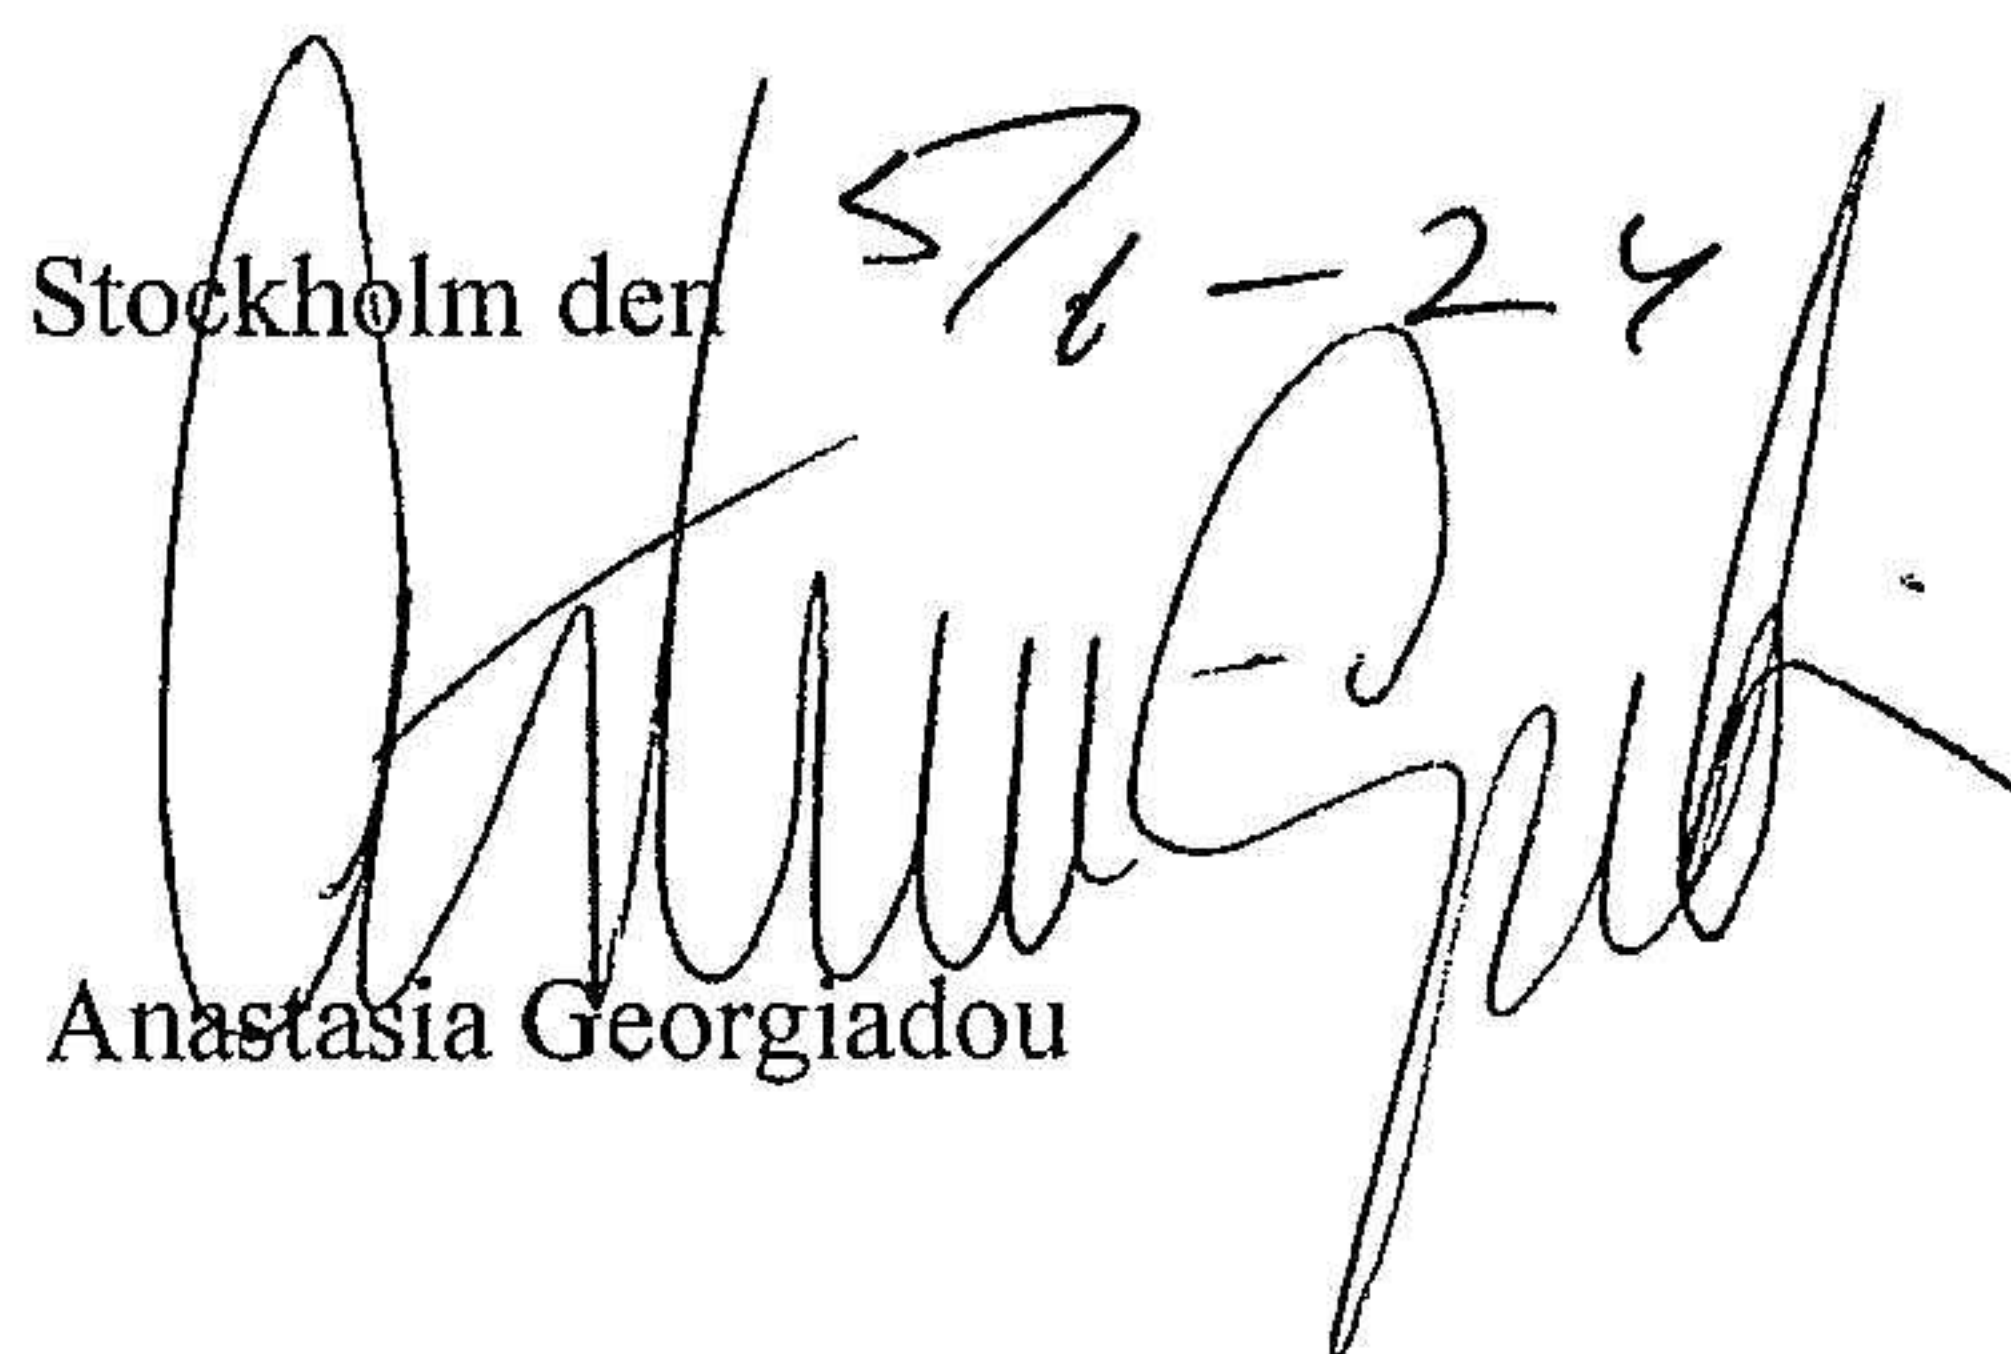 Stockholm den 5/6 - 24
Anastasia Georgiadou